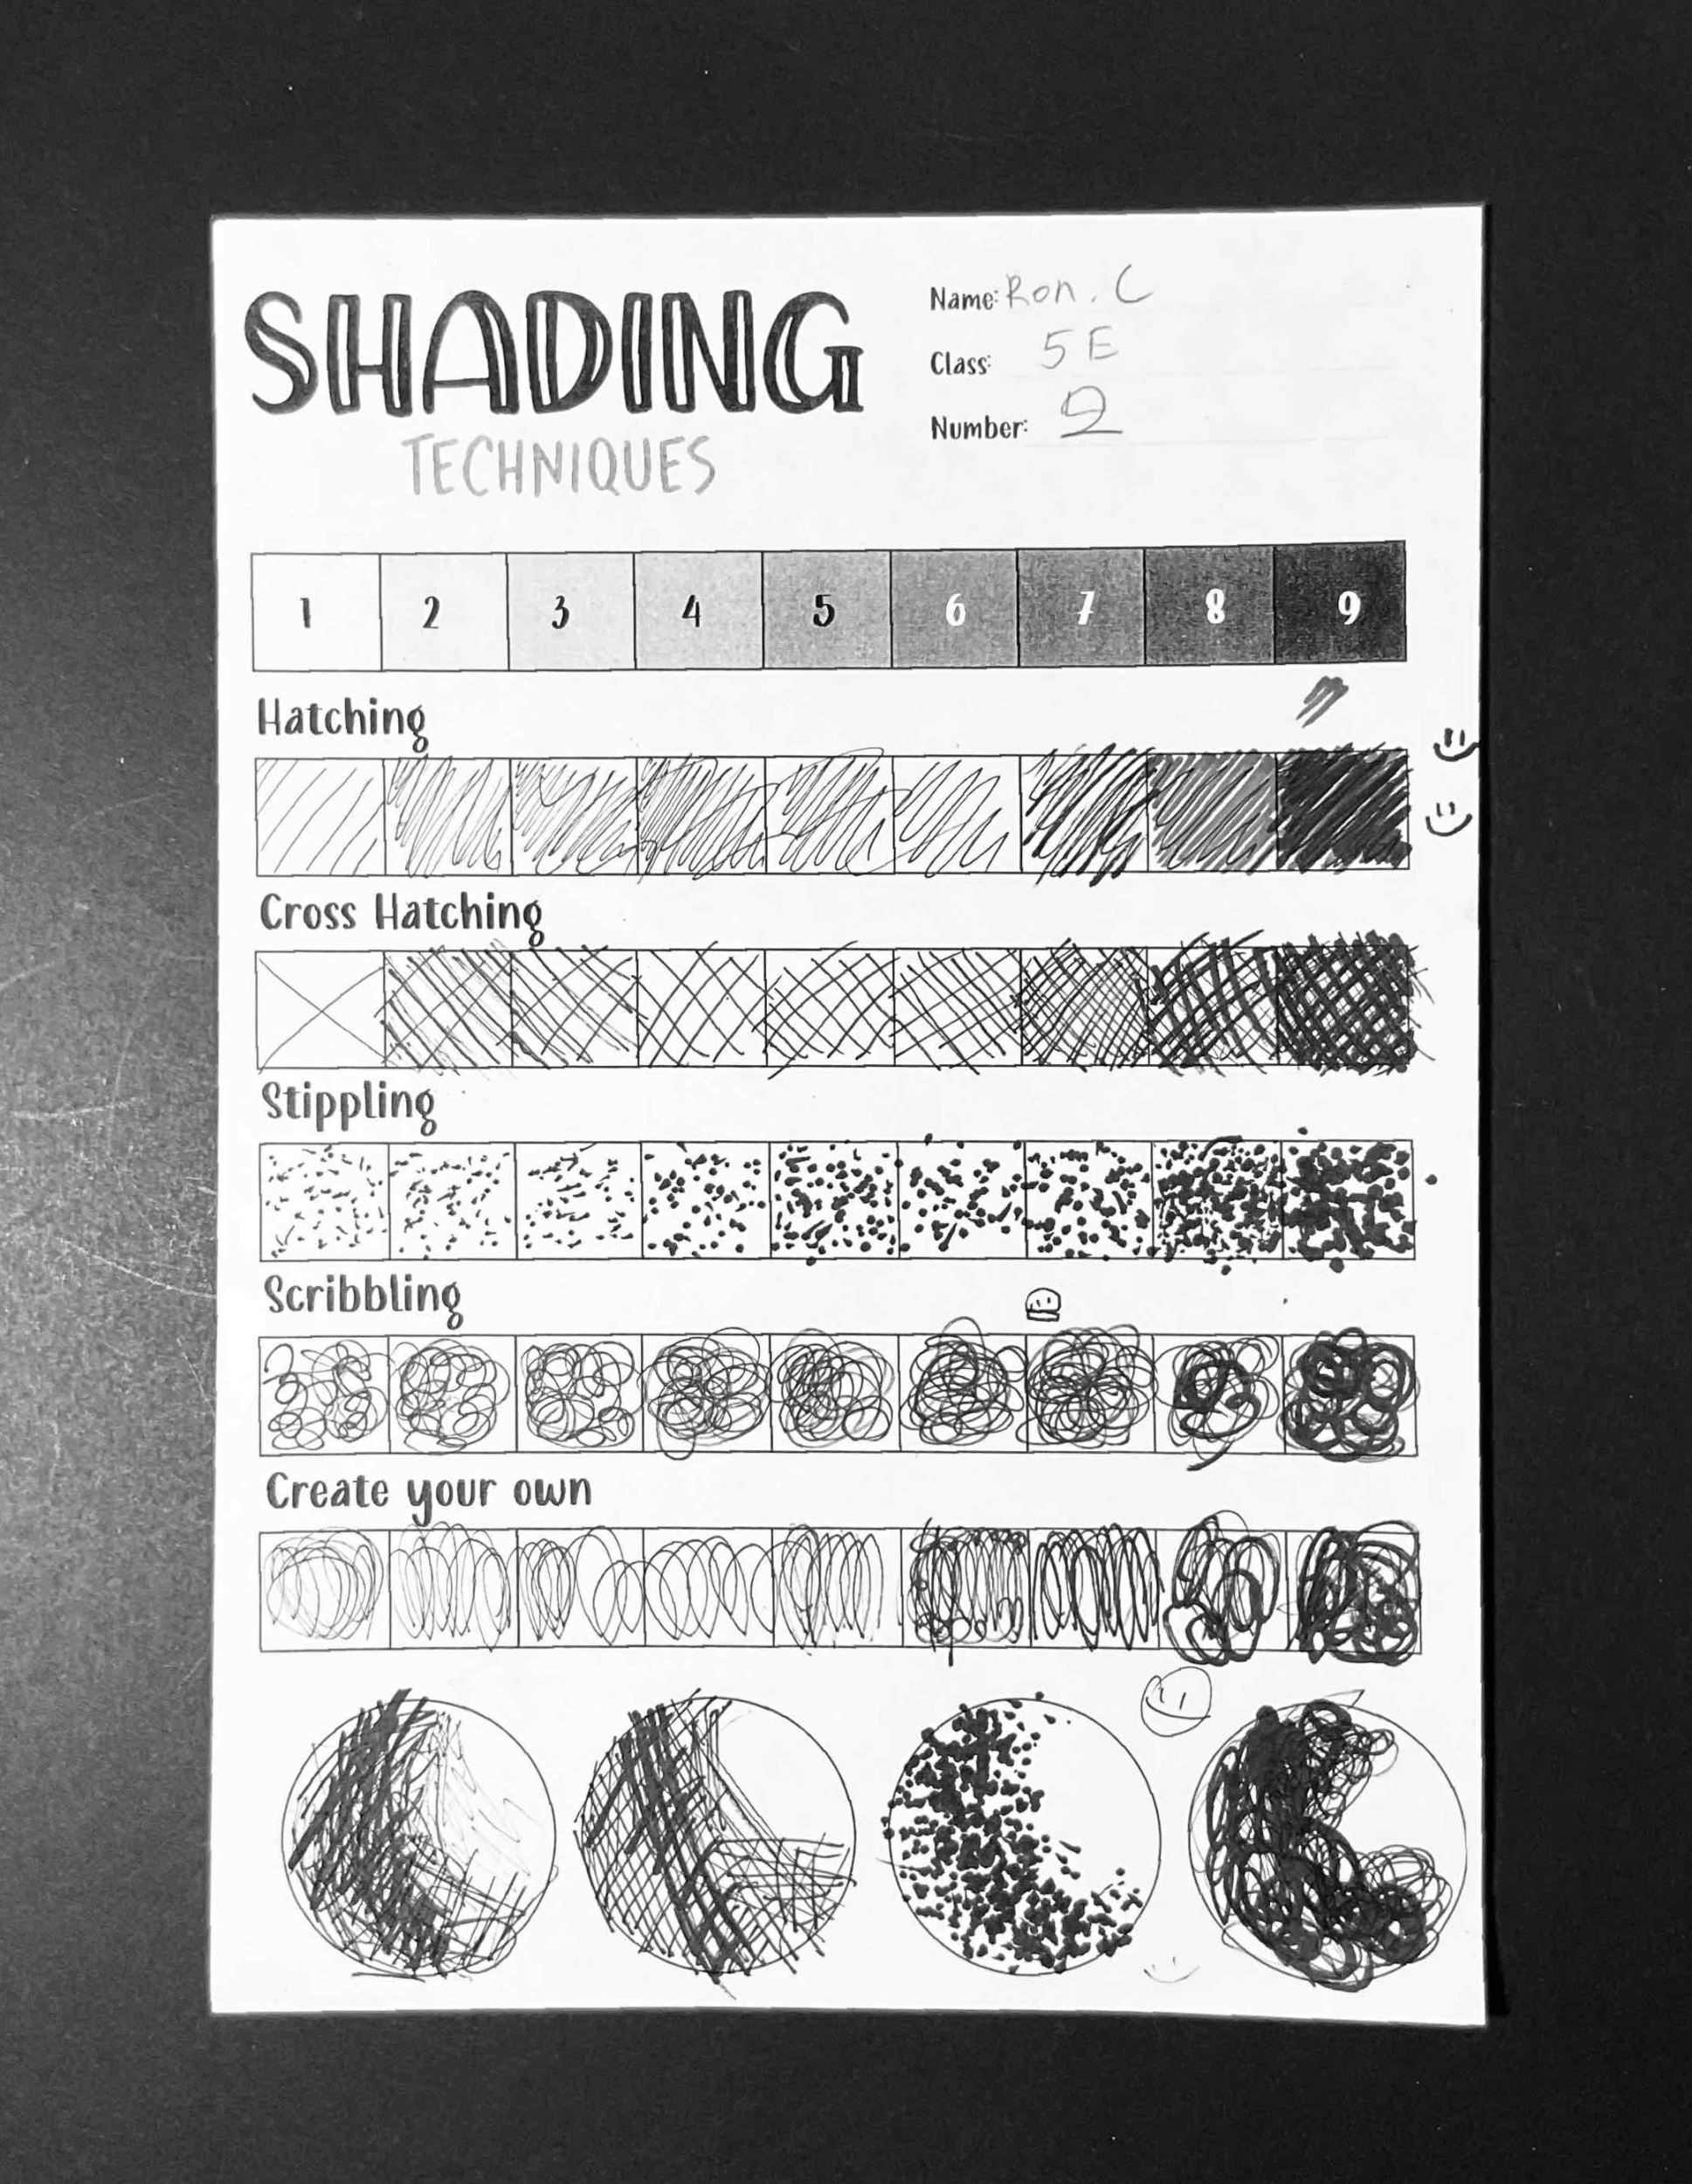 SHADING
TECHNIQUES
Name: Ron. C
Class: 5E
Number: 2
1 2 3 4 5 6 7 8 9
Hatching
Cross Hatching
Stippling
Scribbling
Create your own